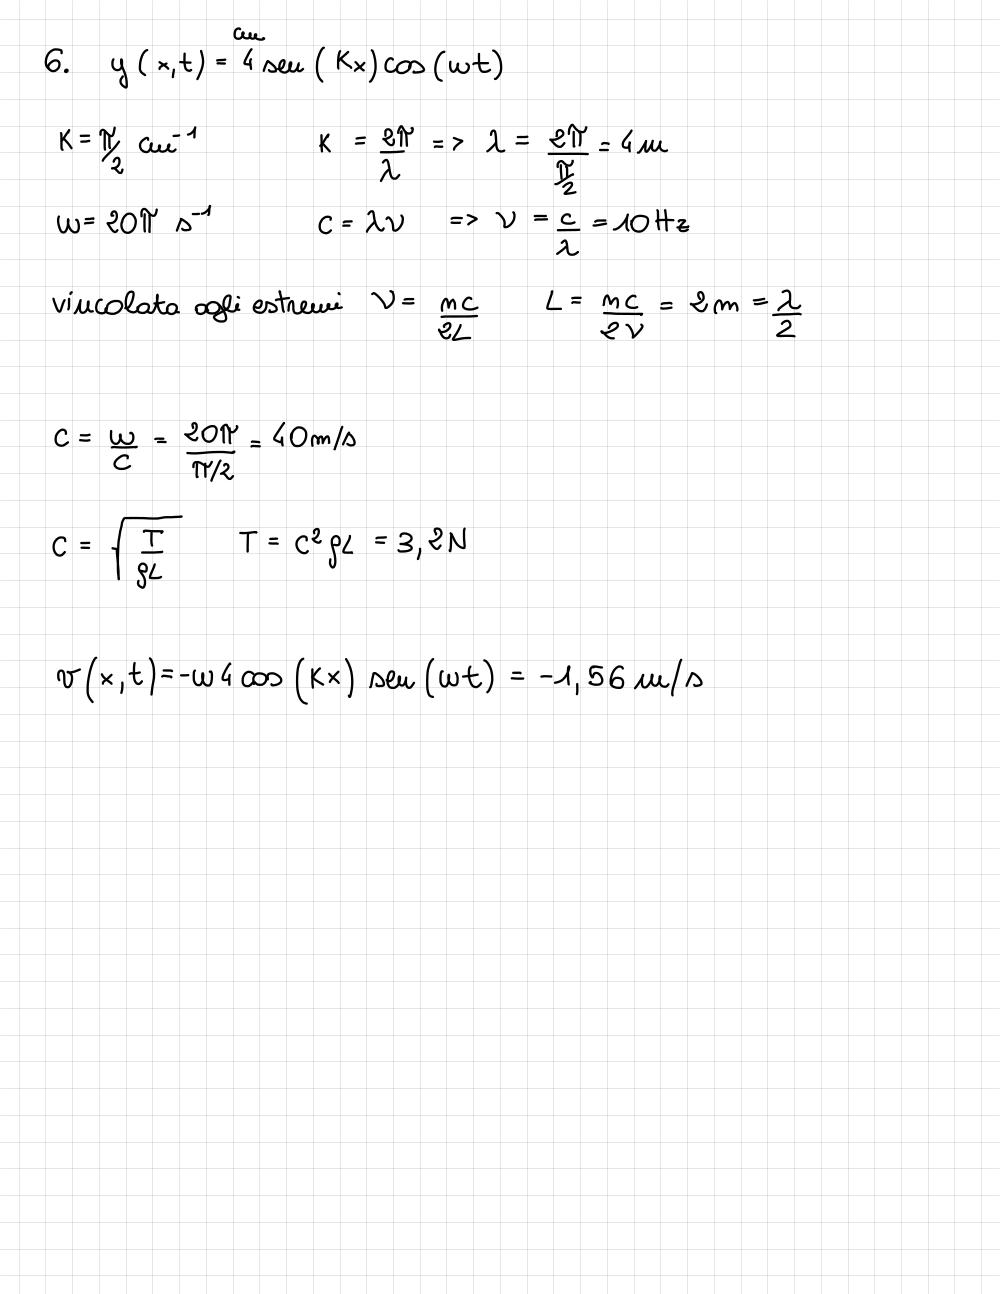 cm
6. y(x,t) = 4 sen(Kx)cos(ωt)
K = π/2 cm⁻¹ K = 2π/λ => λ = 2π/(π/2) = 4m
ω = 20π s⁻¹ c = λν => ν = c/λ = 10Hz
vincolata agli estremi ν = mc/2L L = mc/2ν = 2m = λ/2
c = ω/c = 20π/(π/2) = 40m/s
c = √(T/ρL) T = c²ρL = 3,2N
v(x,t) = -ω4 cos(Kx) sen(ωt) = -1,56 m/s